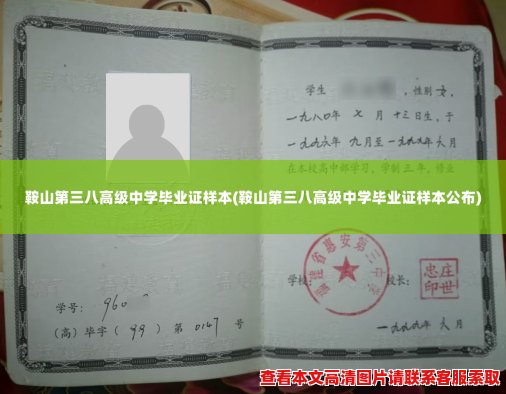 学生
，性别女，
一九八〇年 七 月 十三日生，于
一九九六年 九月至一九九九年六月
在本校高中部学习，学制三年，修业
鞍山第三八高级中学毕业证样本(鞍山第三八高级中学毕业证样本公布)
福建省惠安第三中学
学校
校长：
庄世忠印
学号： 960
(高) 毕字 ( 99 ) 第 0147 号
一九九九年 六 月
查看本文高清图片请联系客服索取